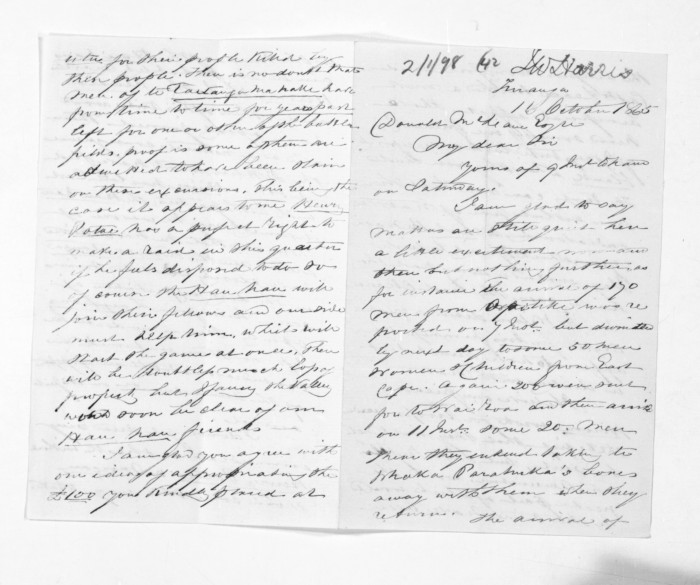 2/1/98 J W Harris
Turanga
16 October 1865
Donald McLean Esqre
My dear Sir
Yours of 9 Inst came
on Saturday.
I am glad to say
matters are still quiet here
a little excitement now and
then but nothing further as
for instance the arrival of 170
men from Opotiki was re
ported on 7 Inst. but dwindled
by next day to some 50 men
women & children from East
Cape. Again 200 were sent
for to Wairoa and then arrive
on 11 Inst. some 20. Men
hear they intend taking
Parahuka's bones
away with them when they
return. The arrival of
utu for their people killed by
their people. There is no doubt that
men of te Taitanga mahake have
from time to time for years past
left for one or other of the battle
fields. proof is some of them are
admitted to have been slain
on these excursions. This being the
case it appears to me Henry
Potae has a perfect right to
make a raid in this quarter
if he feels disposed to do so
of course the Hau Hau will
join their fellows and our side
must help him. which will
start the game at once. There
will be doubtless much loss of
property but I fancy the Valley
would soon be clear of our
Hau Hau friends
I am glad you agree with
our ideas of appropriating the
£100 you kindly placed at